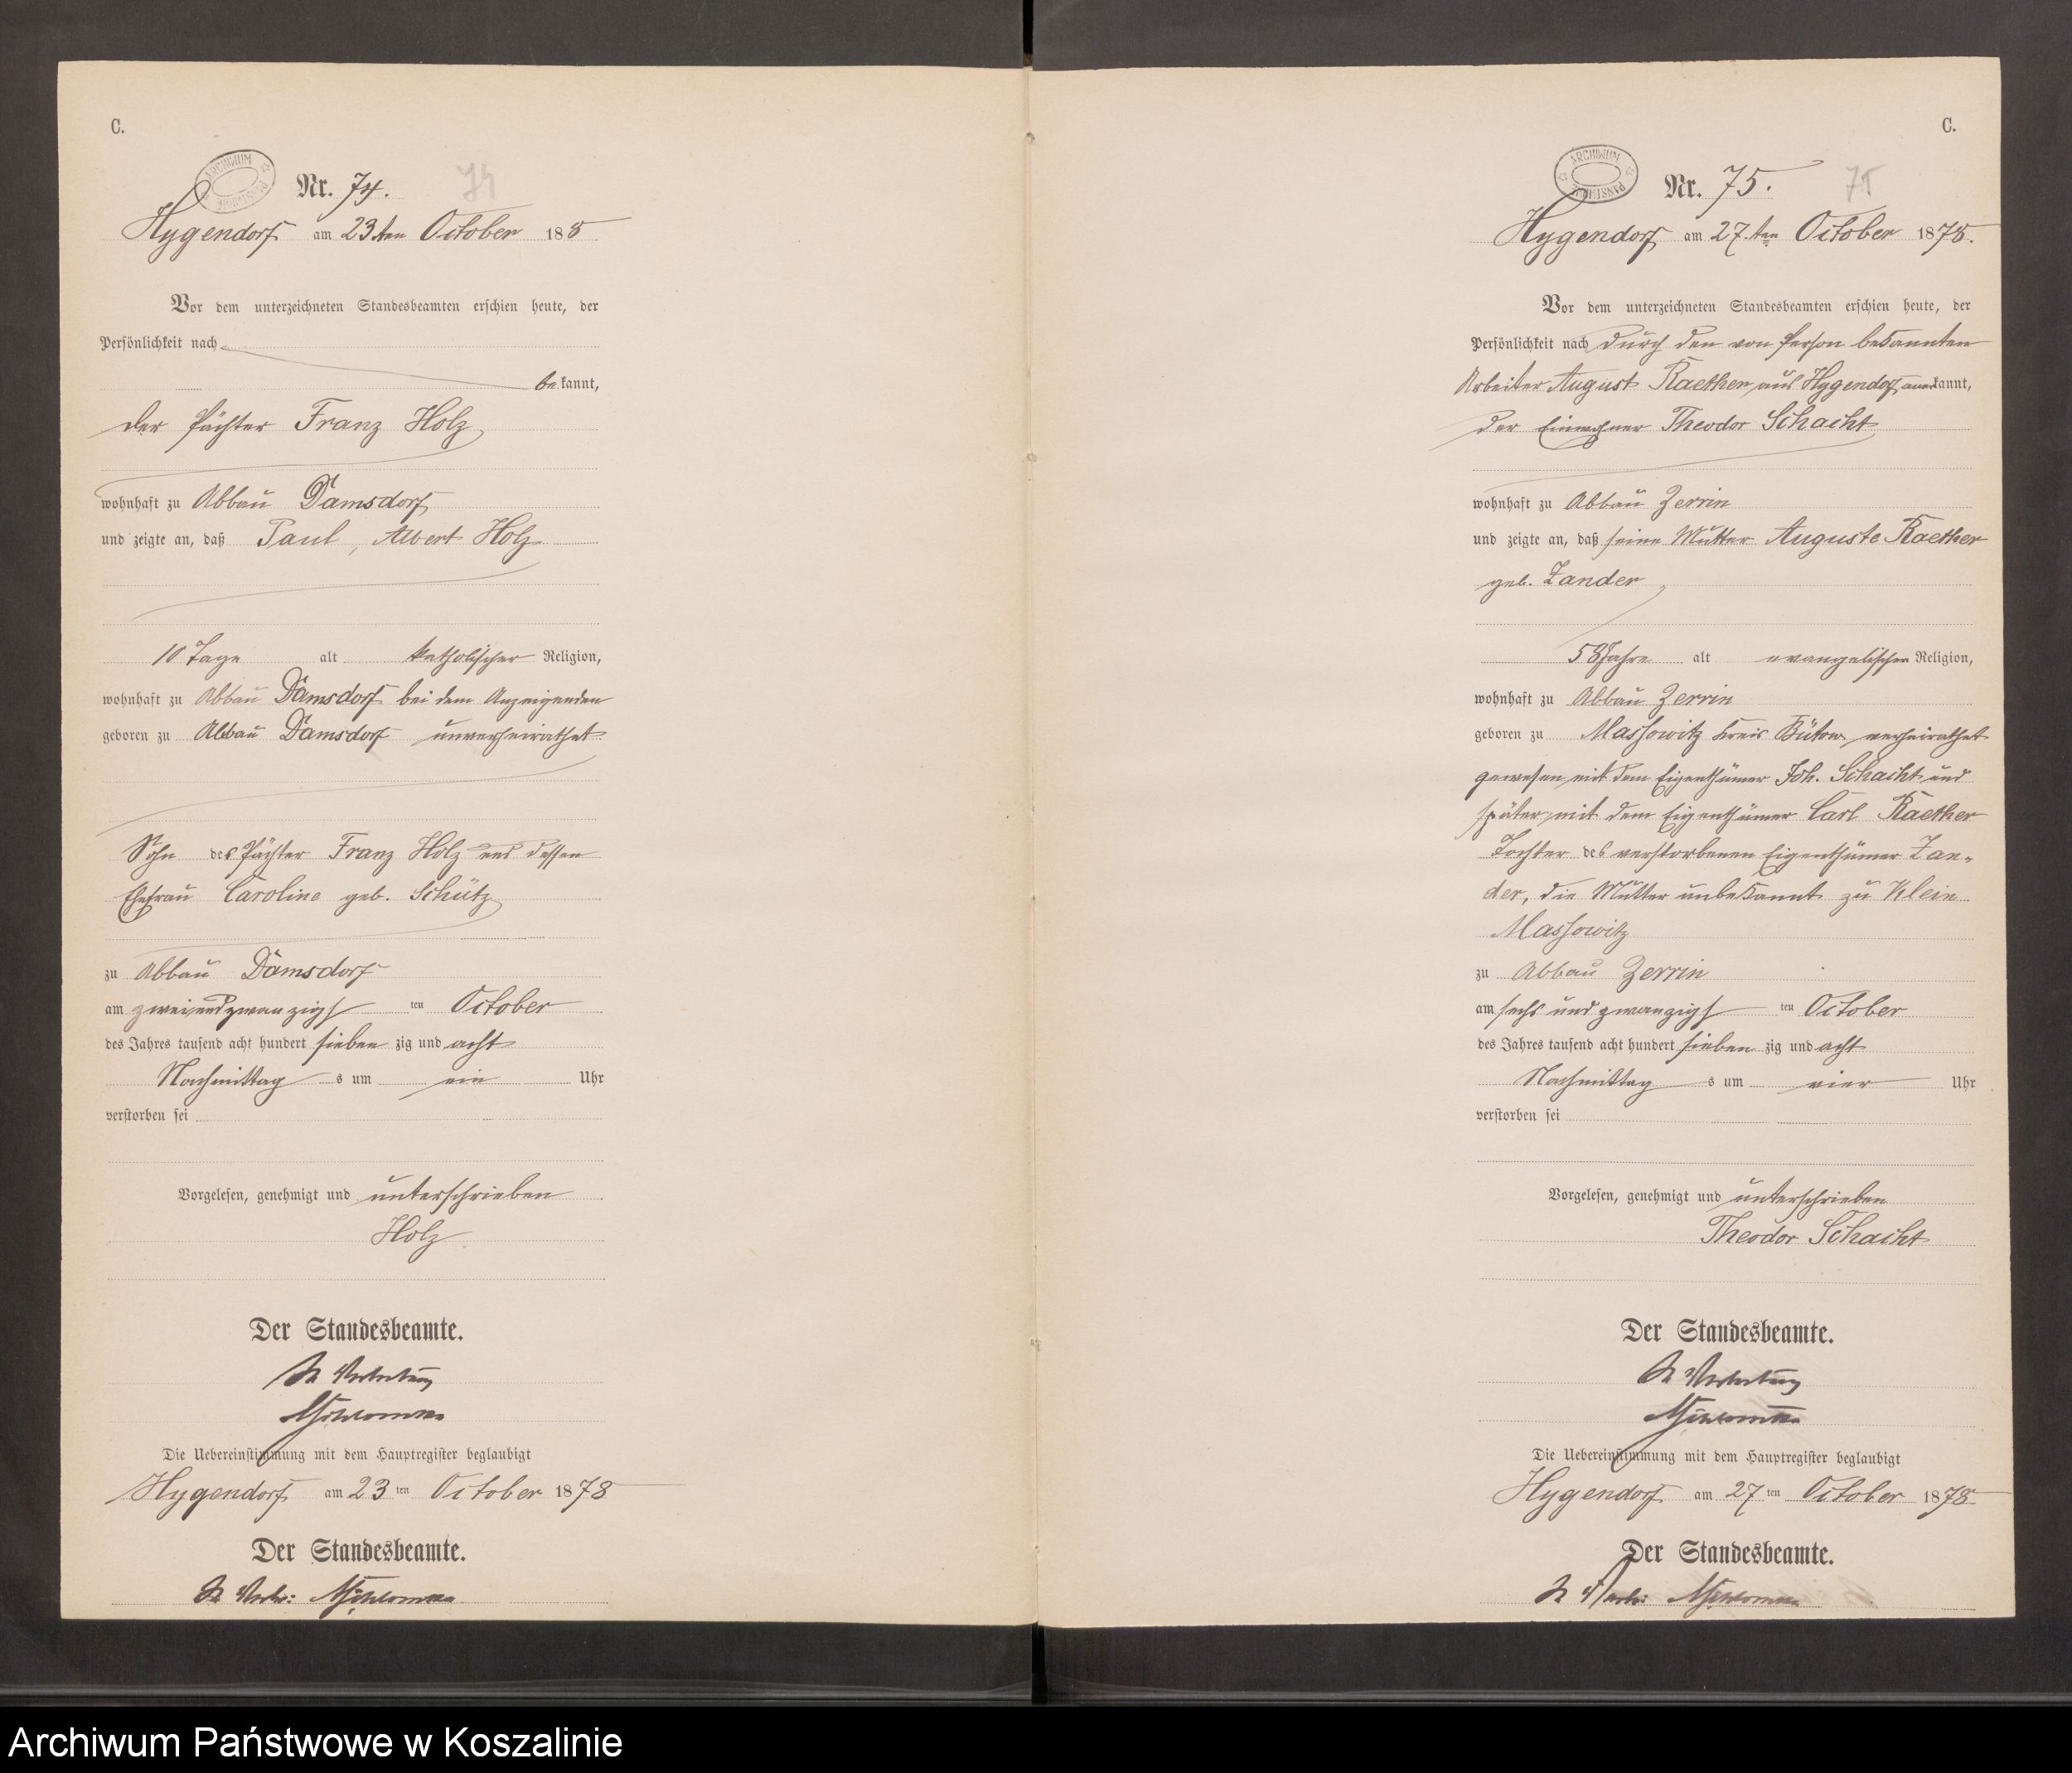 C.
ARCHIWUM PAŃSTWOWE
Nr. 74.
74
Hygendorf am 23ten October 188
Vor dem unterzeichneten Standesbeamten erschien heute, der
Persönlichkeit nach
bekannt,
der Pächter Franz Holz
wohnhaft zu Abbau Damsdorf
und zeigte an, daß Paul, Albert Holz
10 Tage alt katholischer Religion,
wohnhaft zu Abbau Damsdorf bei dem Anzeigenden
geboren zu Abbau Damsdorf unverheirathet
Sohn des Pächter Franz Holz und dessen
Ehefrau Caroline geb. Schütz
zu Abbau Damsdorf
am zweiundzwanzigsten October
des Jahres tausend acht hundert siebenzig und acht
Nachmittags um ein Uhr
verstorben sei
Vorgelesen, genehmigt und unterschrieben
Holz
Der Standesbeamte.
In Vertretung
Die Uebereinstimmung mit dem Hauptregister beglaubigt
Hygendorf am 23ten October 1878
Der Standesbeamte.
In Vertr:
C.
ARCHIWUM PAŃSTWOWE
Nr. 75.
75
Hygendorf am 27.ten October 1878.
Vor dem unterzeichneten Standesbeamten erschien heute, der
Persönlichkeit nach durch den von Person bekannten
Arbeiter August Raether aus Hygendorf anerkannt,
der Einwohner Theodor Schacht
wohnhaft zu Abbau Zerrin
und zeigte an, daß seine Mutter Auguste Raether
geb. Zander
58 Jahre alt evangelischer Religion,
wohnhaft zu Abbau Zerrin
geboren zu Massowitz Kreis Bütow, verheirathet
gewesen mit dem Eigenthümer Joh. Schacht und
später mit dem Eigenthümer Carl Raether
Tochter des verstorbenen Eigenthümer Zan-
der, die Mutter unbekannt zu Klein
Massowitz
zu Abbau Zerrin
am sechs und zwanzigsten October
des Jahres tausend acht hundert siebenzig und acht
Nachmittags um vier Uhr
verstorben sei
Vorgelesen, genehmigt und unterschrieben
Theodor Schacht
Der Standesbeamte.
In Vertretung
Die Uebereinstimmung mit dem Hauptregister beglaubigt
Hygendorf am 27ten October 1878
Der Standesbeamte.
In Vertr:
Archiwum Państwowe w Koszalinie